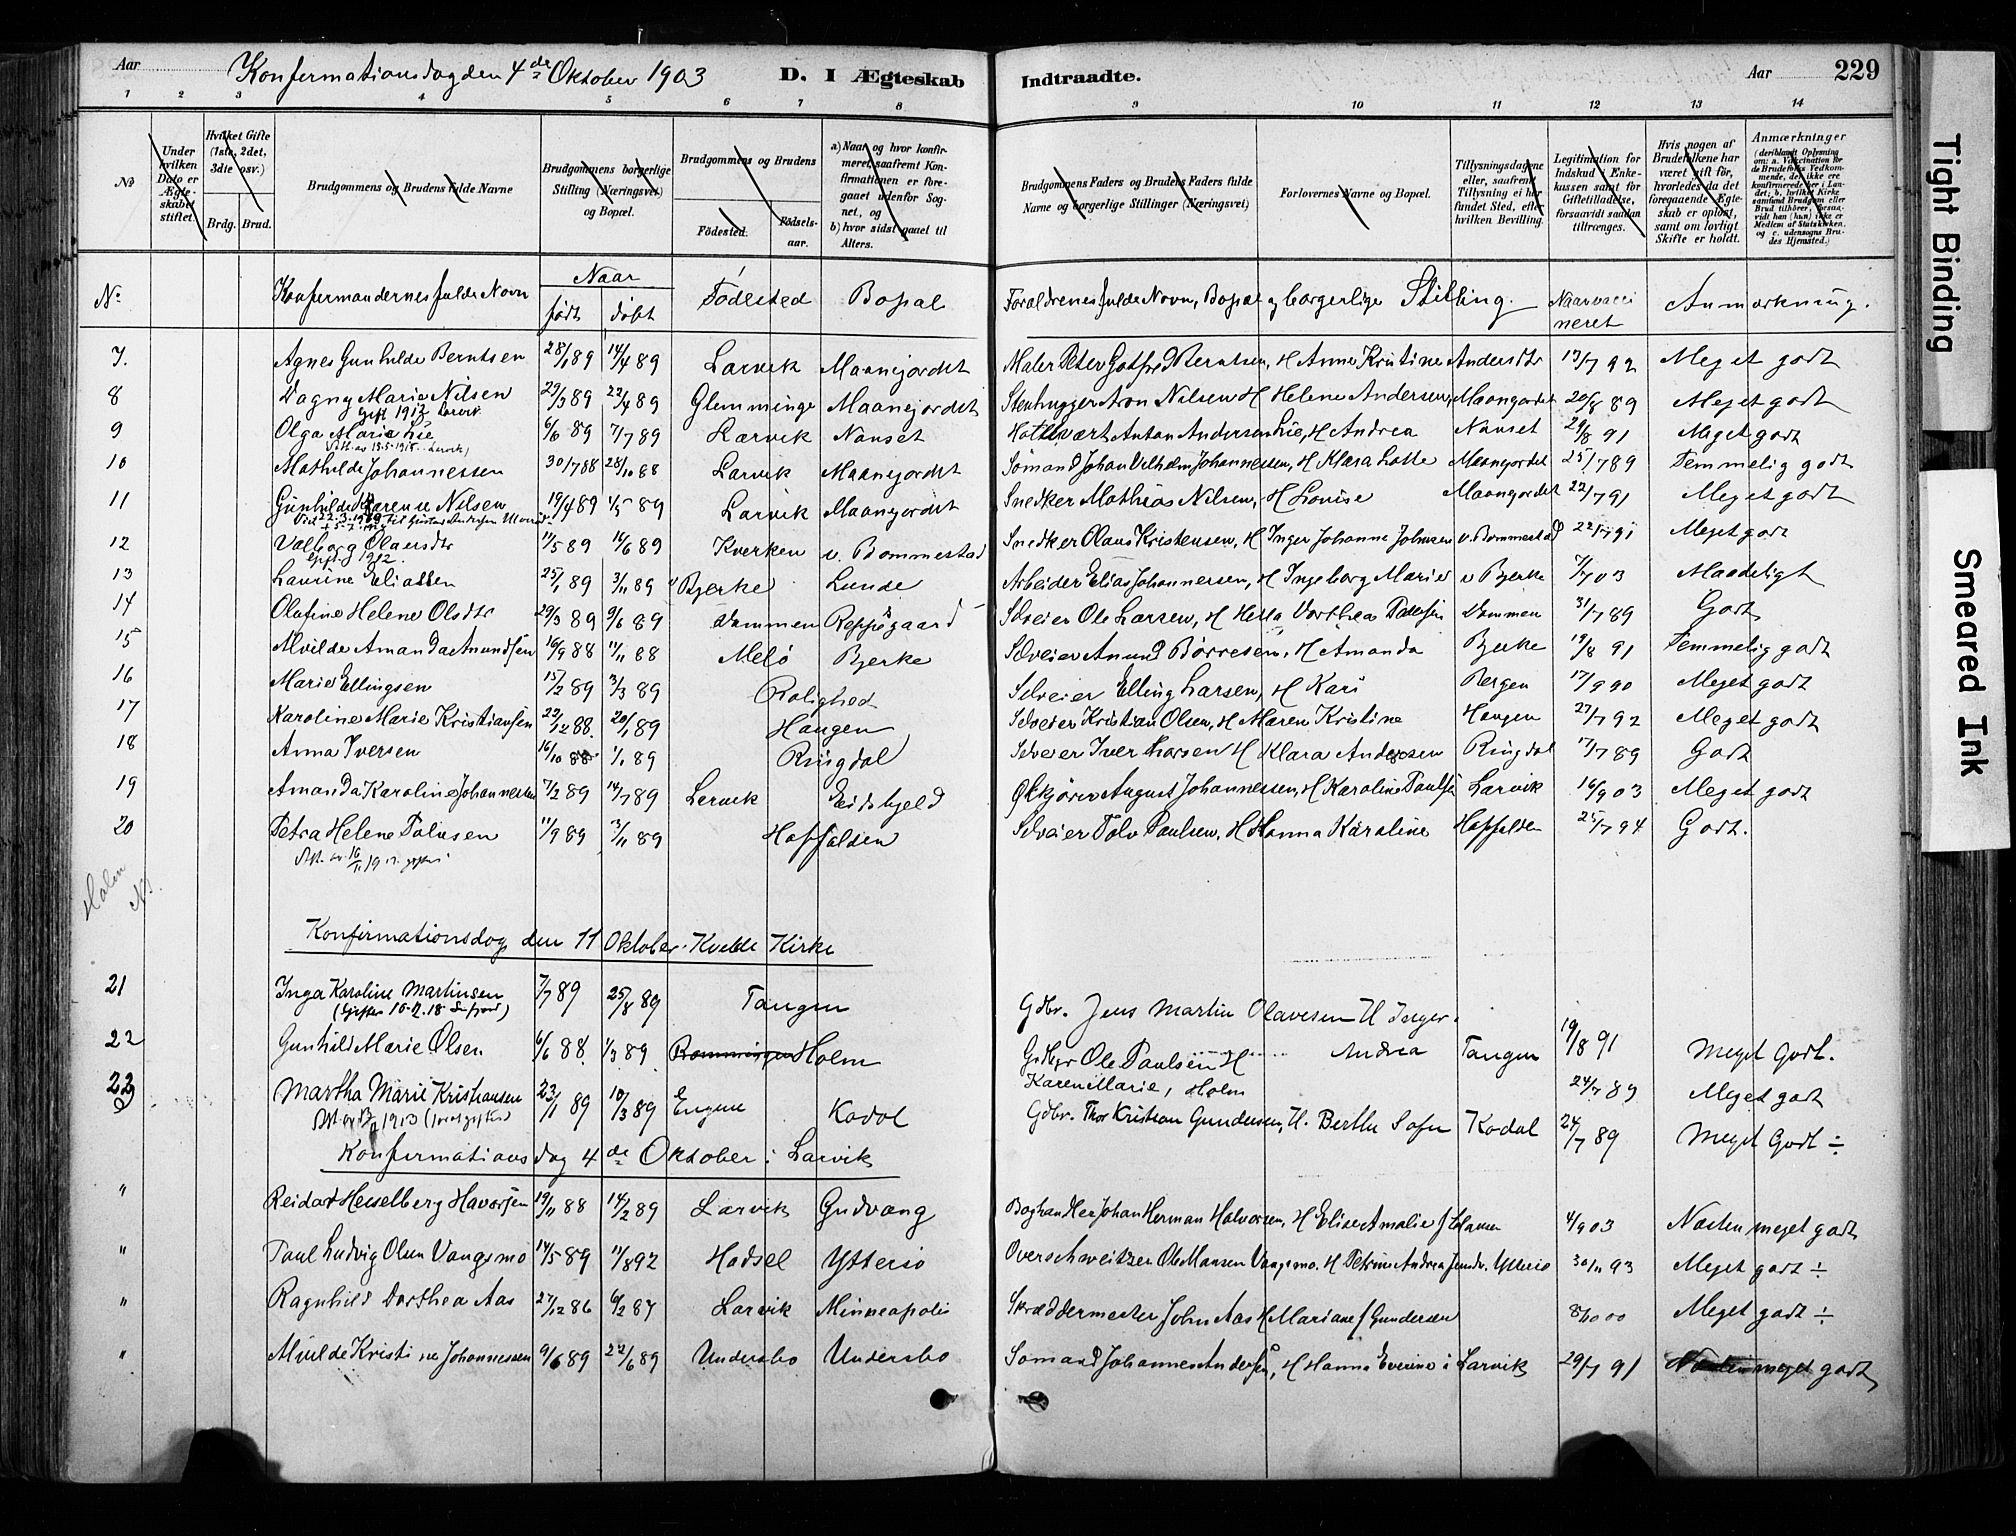 Aar Konfermationsdag den 4de Oktober 1903 D. I Ægteskab Indtraadte. Aar 229
1 2 3 4 5 6 7 8 9 10 11 12 13 14
№
Under hvilken Dato er Ægteskabet stiftet.
Hvilket Gifte (1ste, 2det, 3die osv.)
Brdg. Brud.
Brudgommens og Brudens fulde Navne
Brudgommens borgerlige Stilling (Næringsvei) og Bopæl.
Brudgommens og Brudens
Fødested. Fødselsaar.
a) Naar og hvor konfirmeret, saafremt Konfirmationen er foregaaet udenfor Sognet, og b) hvor sidst gaaet til Alters.
Brudgommens Faders og Brudens Faders fulde Navne og borgerlige Stillinger (Næringsvei)
Forlovernes Navne og Bopæl.
Tillysningsdagene eller, saafremt Tillysning ei har fundet Sted, efter hvilken Bevilling.
Legitimation for Indskud i Enkekassen samt for Giftetilladelse, forsaavidt saadan tiltrænges.
Hvis nogen af Brudefolkene har været gift før, hvorledes da det foregaaende Ægteskab er opløst, samt om lovligt Skifte er holdt.
Anmærkninger (deriblandt Oplysning om: a. Vaccination for de Brudefolks Vedkommende, der ikke ere konfirmerede her i Landet; b. hvilket Kirkesamfund Brudgom eller Brud tilhører, forsaavidt han (hun) ikke er Medlem af Statskirken, og c. udensogns Brudes Hjemsted.)
No. Konfermandernes fulde Navn Naar født døbt Fødested Bopæl Forældrenes fulde Navn, Bopæl og borgerlige Stilling. Naar vaccineret Anmærkning.
7. Agnes Gunhilde Berntsen 28/1 89 14/4 89 Larvik Maanejordet Maler Peter Gotfred Berntsen, H Anne Kristine Andersdtr 13/7 92 Meget godt
8 Dagny Marie Nilsen 29/3 89 22/4 89 Glemminge Maanejordet Stenhugger Aron Nilsen H Helene Andersen, Maanejordet 20/8 89 Meget godt
Gift 1912 Larvik
9 Olga Marie Lie 6/6 89 7/7 89 Larvik Nanset Anton Andersen Lie, H Andrea Nanset 29/8 91 Meget godt
10 Mathilde Johannessen 30/7 88 28/10 88 Larvik Maanejordet Sømand Johan Vilhelm Johannessen, H Klara Lotte Maanejordet 25/7 89 Temmelig godt
11 Gunhilde Karenu Nilsen 19/4 89 1/5 89 Larvik Maanejordet Snedker Mathias Nilsen, H Lovise Maanejordet 22/7 91 Meget godt
12 Valborg Olausdtr 11/5 89 16/6 89 Kverken v. Bommestad Snedker Olaus Kristensen, H Inger Johanne Johnsen v. Bommestad 22/7 91 Meget godt
Gift 1912.
13 Laurine Eliassen 25/1 89 3/11 89 Bjerke Lunde Arbeider Elias Johannessen, H Ingeborg Marie v Bjerke 7/7 03 Maadeligt
14 Olafine Helene Olsdtr 29/3 89 9/6 89 Dammen Reppesgaard Selveier Ole Larsen, H Hella Dorthea Pedersen Dammen 31/7 89 Godt
15 Alvilde Amanda Amundsen 16/9 88 11/11 88 Melø Bjerke Selveier Amund Børresen, H Amanda Bjerke 19/8 91 Temmelig godt
16 Marie Ellingsen 15/2 89 3/3 89 Rolighed Selveier Elling Larsen, H Kari Bergen 17/9 90 Meget godt
17 Karoline Marie Kristiansen 22/12 88. 20/1 89 Haugen Selveier Kristian Olsen, H Maren Kristine Haugen 27/7 92 Meget godt
18 Anna Iversen 16/10 88 1/1 89 Ringdal Selveier Iver Thorsen H Klara Andersen Ringdal 17/7 89 Godt
19 Amanda Karoline Johannessen 7/2 89 14/7 89 Larvik August Johannessen, H Karoline Paulsen Larvik 16/9 03 Meget godt
20 Petra Helene Polusen 11/9 89 3/11 89 Hoffalden Selveier Paulsen, H Hanna Karoline Hoffalden 25/7 94 Godt.
Holm
Konfirmationsdag den 11 Oktober. Kvelde Kirke
21 Inga Karoline Martinsen 7/7 89 25/8 89 Tangen Gdbr. Jens Martin Olavesen H Inger. Andrea Tangen 19/8 91 Meget Godt.
22 Gunhild Marie Olsen 6/6 88. 1/3 89 Holm Gdbr Ole Paulsen H Karen Marie, Holm 24/7 89 Meget godt
23 Martha Marie Kristiansen 23/1 89 10/3 89 Kodal Gdbr. Thor Kristian Gundersen, H. Berthe Sofie Kodal 24/7 89 Meget Godt ÷
Konfermations dag 4de Oktober i Larvik
" Reidar Hesselberg Havorsen 19/11 88 14/2 89 Larvik Gudvang Boghandler Johan Herman Halvorsen, H Elise Amalie f. 4/9 03 Næsten meget godt
" Paul Ludvig Olsen Vangsmo 14/5 89 11/8 92 Hadsel Ytterø Overschweitzer Ole Hansen Vangsmo. H Petrine Andrea 30/11 93 Meget godt ÷
" Ragnhild Dorthea Aas 27/12 86 6/2 87 Larvik Minneapolis Skræddermester John Aas H Mariane f Gundersen 8/10 00 Meget godt ÷
" Alvilde Kristine Johannessen 9/6 89 22/6 89 Undersbo Undersbo Sømand Johannes Andersen, H Hanna Everine i Larvik 29/7 91 Næsten meget godt
Tight Binding
Smeared Ink